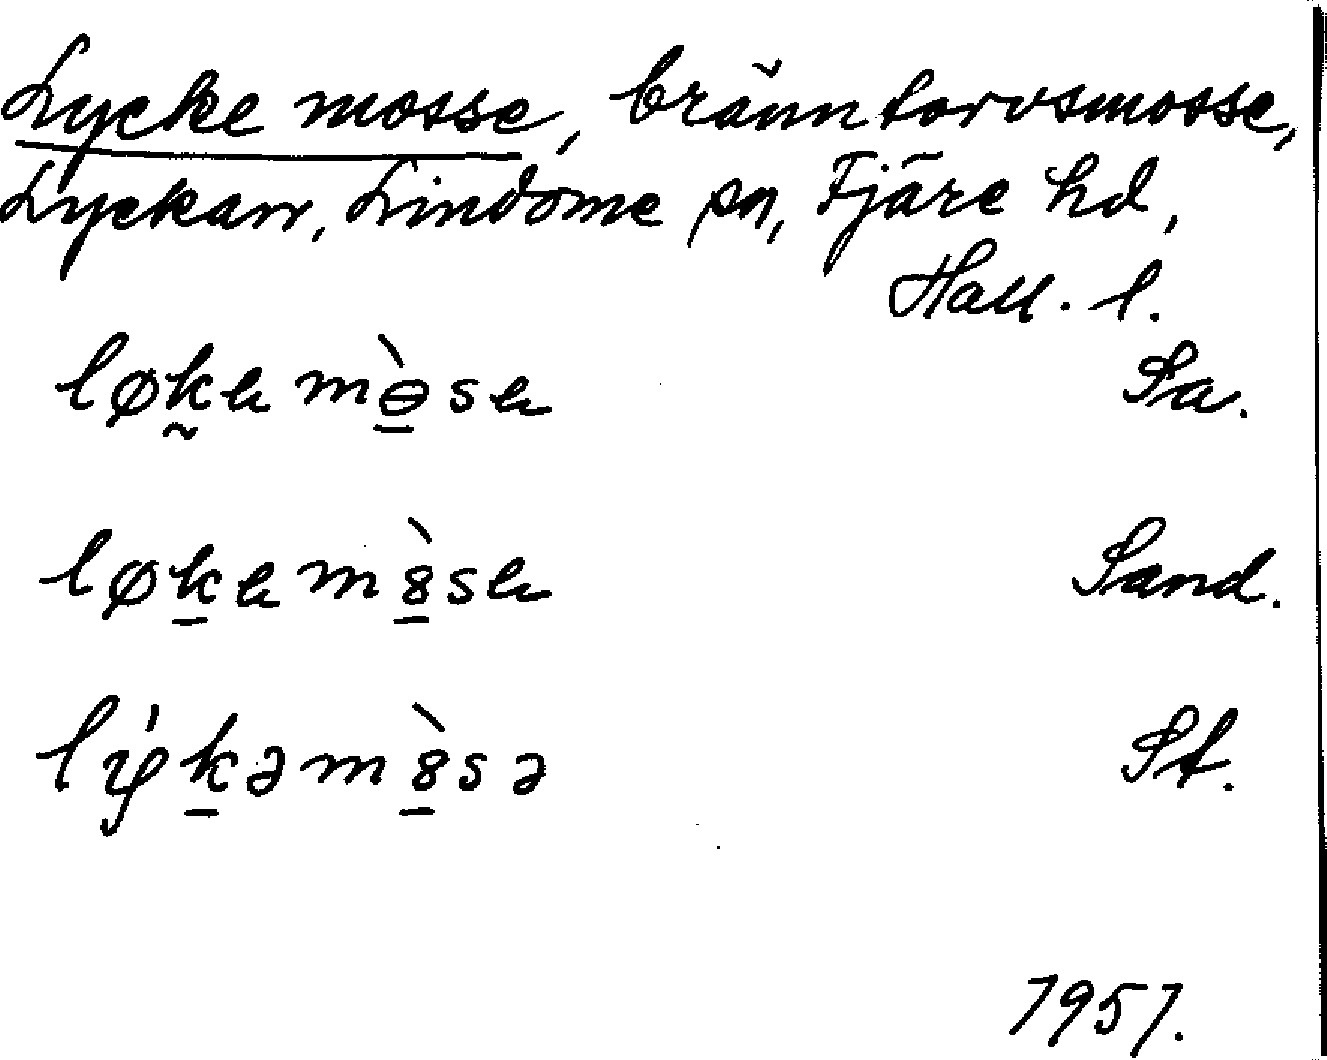 Lycke mosse, bränntorvsmosse,
Lyckan, Lindome sn, Fjäre hd,
Hall. l.
løk̰emɵ̠̀se Sa.
løk̠em8̠̀se Sand.
lýk̠əm8̠̀sə St.
1951.